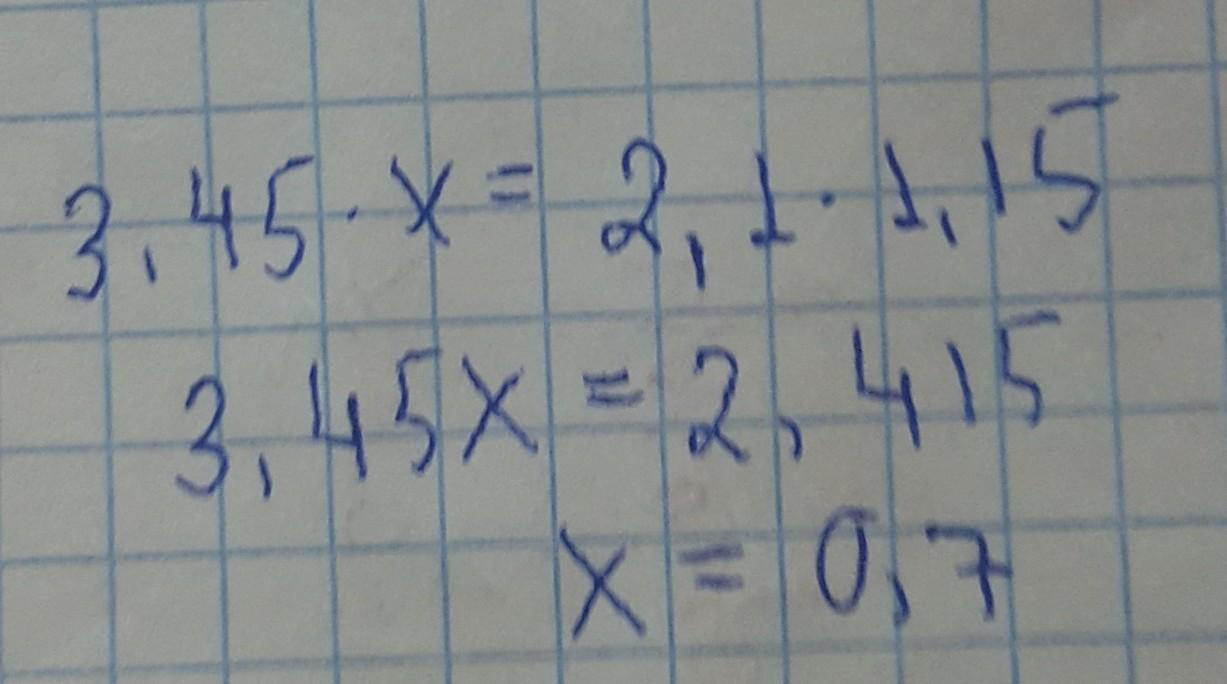 3,45 · x = 2,1 · 1,15
3,45x = 2,415
x = 0,7